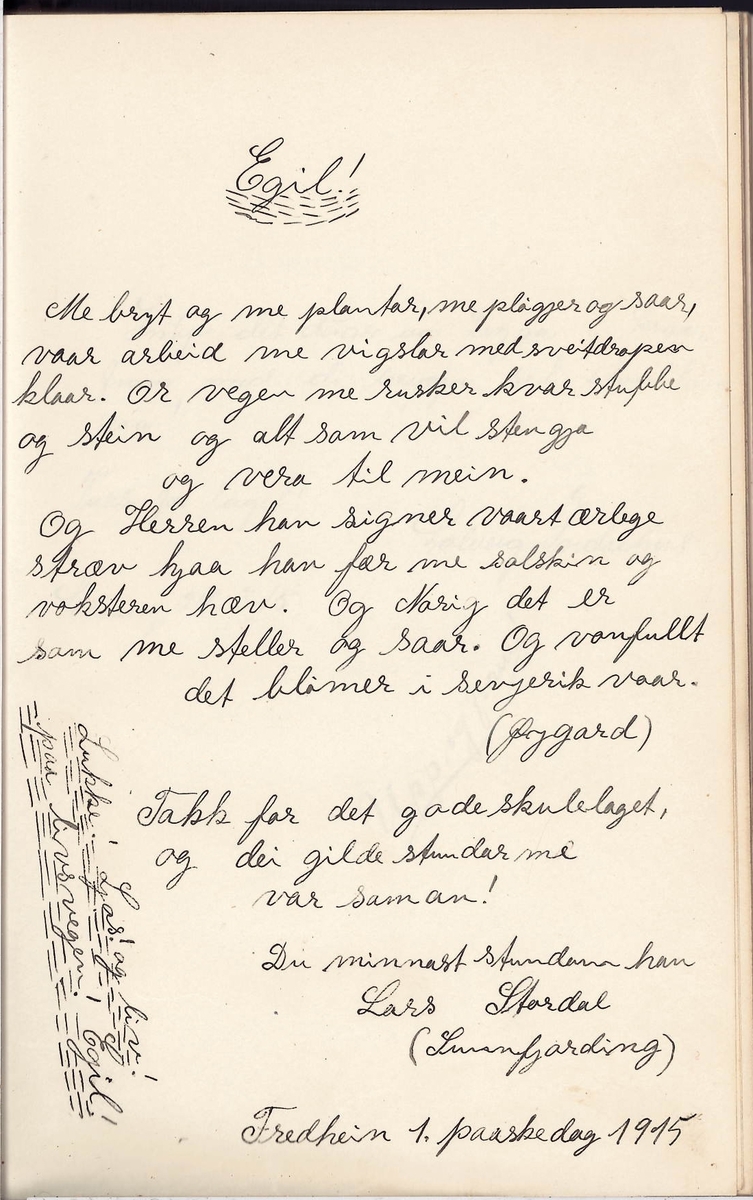 Egil!
Me bryt og me plantar, me pløgjer og saar,
vaar arbeid me vigslar med sveitdropen
klaar. Or vegen me rusker kvar stubbe
og stein og alt som vil stengja
og vera til mein.
Og Herren han signer vaart ærlege
stræv hjaa han fær me solskin og
voksteren hæv. Og Norig det er
som me steller og saar. Og vonfullt
det blømer i sevjerik vaar.
(Øygard)
Takk for det gode skulelaget,
og dei gilde stundar me
var saman!
Du minnast stundom han
Lars Stordal
(Sunnfjording)
Fredheim 1. paaskedag 1915
Lukke! Ljos! og liv!
paa livsvegen! Egil!